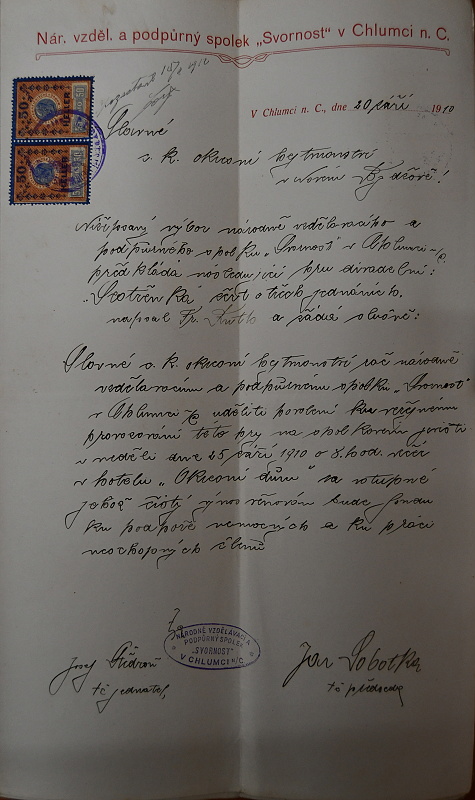 Nár. vzděl. a podpůrný spolek „Svornost" v Chlumci n. C.
V Chlumci n. C., dne 20 září 1910
50
HELLER
50
50
HELLER
50
Slavné
c. k. okresní hejtmanství
v Novém Bydžově!
Nížepsaný výbor národně vzdělavacího a
podpůrného spolku „Svornost" v Chlumci n/C.
předkládá následující hru divadelní:
sehr o třech jednáních.
napsal Fr. a žádá slavné:
Slavné c. k. okresní hejtmanství rač národně
vzdělavacímu a podpůrnému spolku „Svornost"
v Chlumci n/C uděliti povolení ku veřejnému
provozování této hry na spolkovém jevišti
v neděli dne 25 září 1910 o 8. hod. več
v hotelu „Okresní dům" za vstupné
jehož čistý výnos věnován bude fondu
ku podpoře nemocných a ku práci
neschopných členů
Za
NÁRODNĚ VZDĚLÁVACÍ A
PODPŮRNÝ SPOLEK
„SVORNOST"
V CHLUMCI N/C
Josef
tč jednatel,
Jan Sobotka
tč předseda